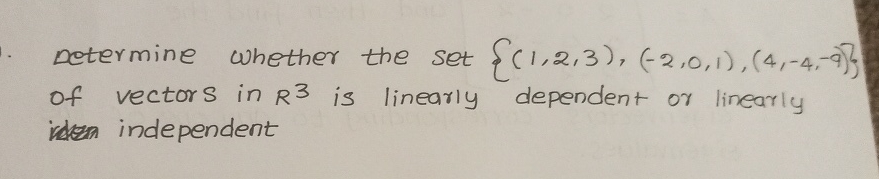 . Determine whether the set {(1,2,3), (-2,0,1), (4,-4,-9)}
of vectors in R3 is linearly dependent or linearly
independent